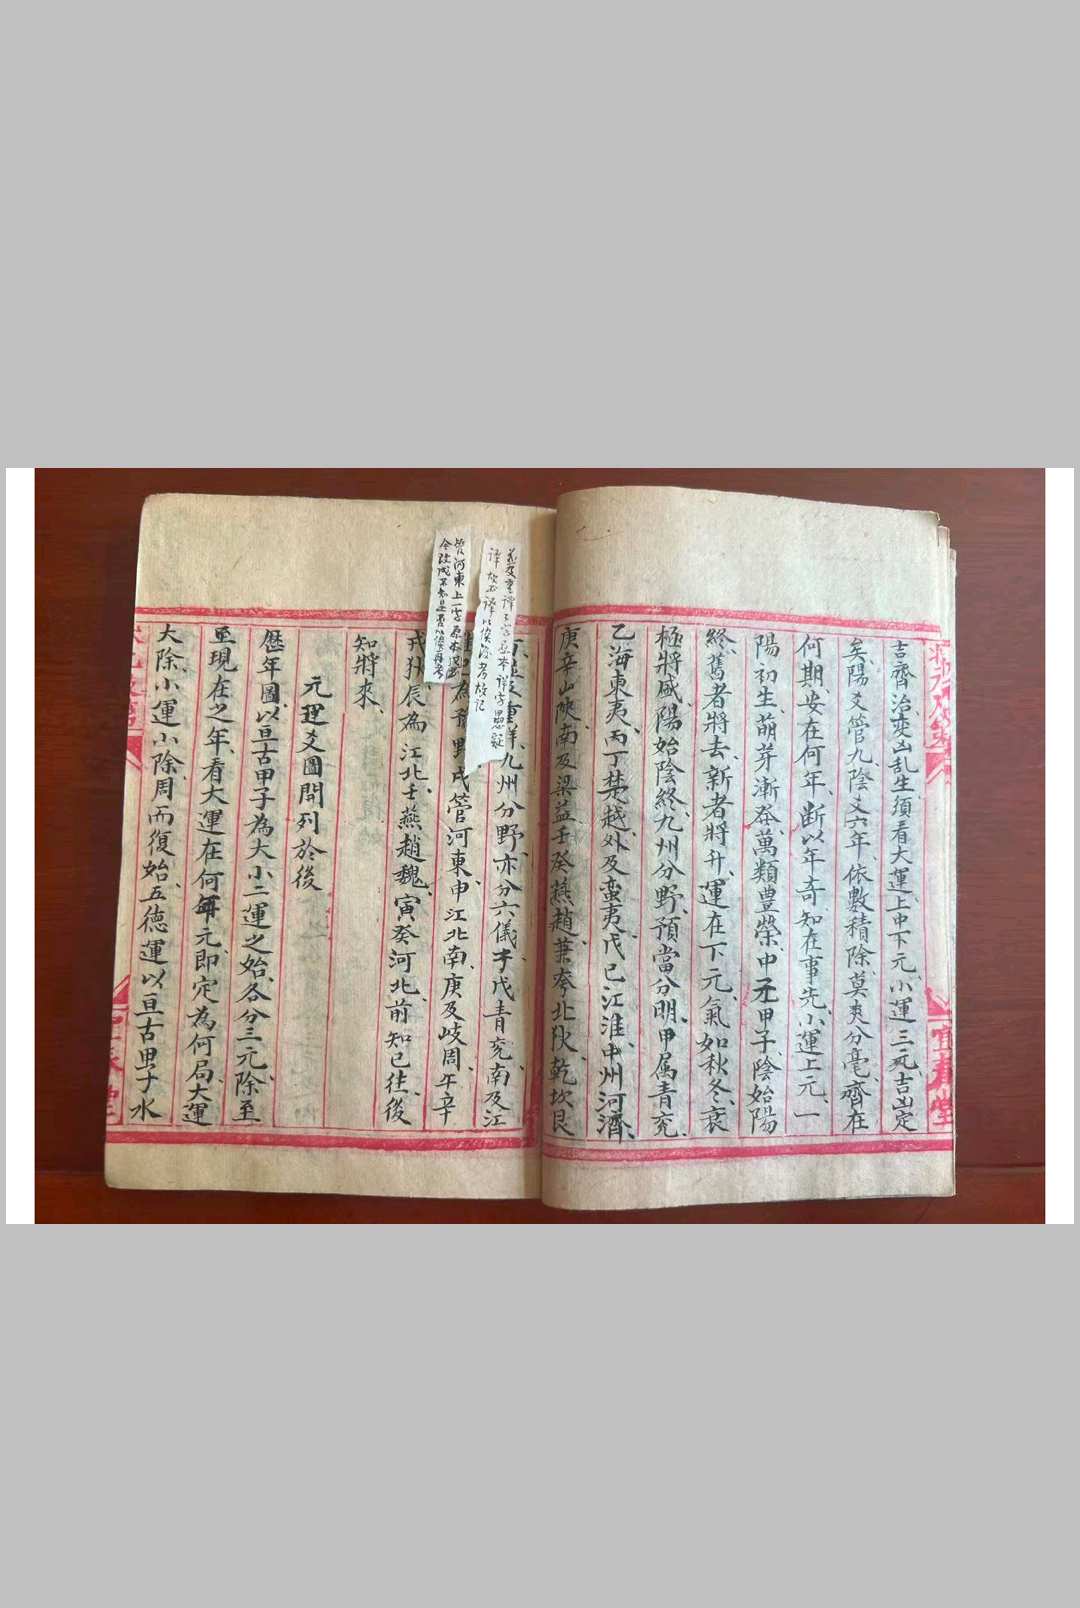 吉齊治変凶乱生須看大運上中下元小運三元吉凶定
矣陽爻管九陰爻六年依數積除莫爽分毫齊在
何期安在何年断以年奇知在事先小運上元一
陽初生萌芽漸發萬類豊榮中元甲子陰始陽
終舊者將去新者將升運在下元氣如秋冬衰
極將盛陽始陰終九州分野預當分明甲属青兖
乙海東夷丙丁楚越外及蛮夷戊己江淮中州河濟
庚辛山陝南及梁益壬癸燕趙兼夸北狄乾坎艮
九州分野亦分六儀子戊青兖南及江
為 野戌管河東申江北南庚及岐周午辛
戎 辰為江北壬燕趙魏寅癸河北前知已徃後
知將來
元運爻圖開列於後
歷年圖以亘古甲子為大小二運之始各分三元除至
至現在之年看大運在何年元即定為何局大運
大除小運小除周而復始五徳運以亘古甲子水
本 字思疑
以俟後考故記
管河東上一字原本
今改戌不知是否以俟再考
宜春堂